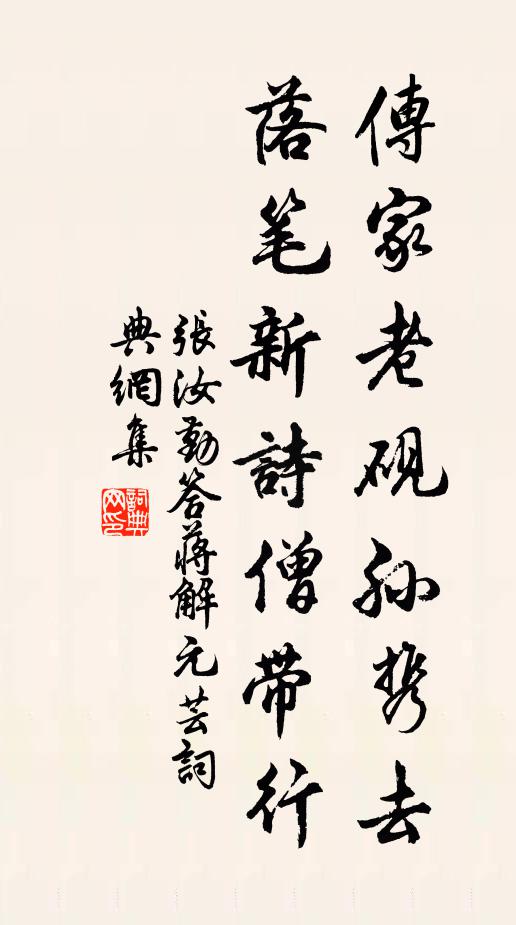 傳家老硯孫携去
落笔新詩僧带行
張汝勤答蔣解元芸詞
典網集
詞典网印